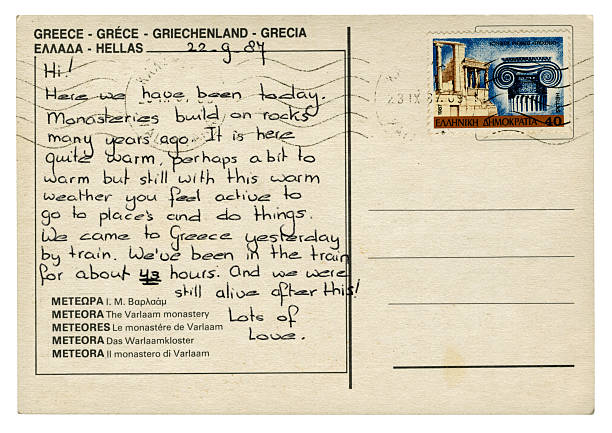 GREECE - GRÉCE - GRIECHENLAND - GRECIA
ΕΛΛΑΔΑ - HELLAS
22-9-87
Hi!
Here we have been today.
Monasteries build on rocks
many years ago. It is here
quite warm, perhaps a bit to
warm but still with this warm
weather you feel active to
go to places and do things.
We came to Greece yesterday
by train. We've been in the train
for about 43 hours. And we were
still alive after this!
Lots of
Love.
ΜΕΤΕΩΡΑ Ι. Μ. Βαρλαάμ
METEORA The Varlaam monastery
METEORES Le monastére de Varlaam
METEORA Das Warlaamkloster
METEORA Il monastero di Varlaam
ΕΛΛΗΝΙΚΗ ΔΗΜΟΚΡΑΤΙΑ 40
23 IX 87.09